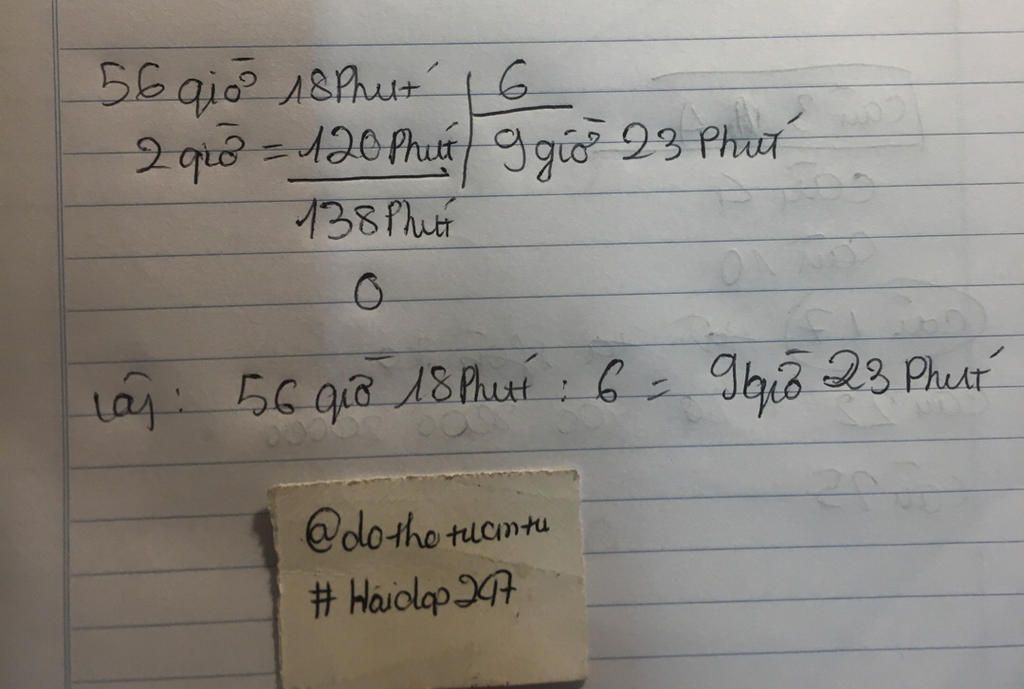 56 giờ 18 Phút 6
2 giờ = 120 Phút 9 giờ 23 Phút
138 Phút
0
Vậy: 56 giờ 18 Phút : 6 = 9 giờ 23 Phút
@dothetuantu
#Hoidap247